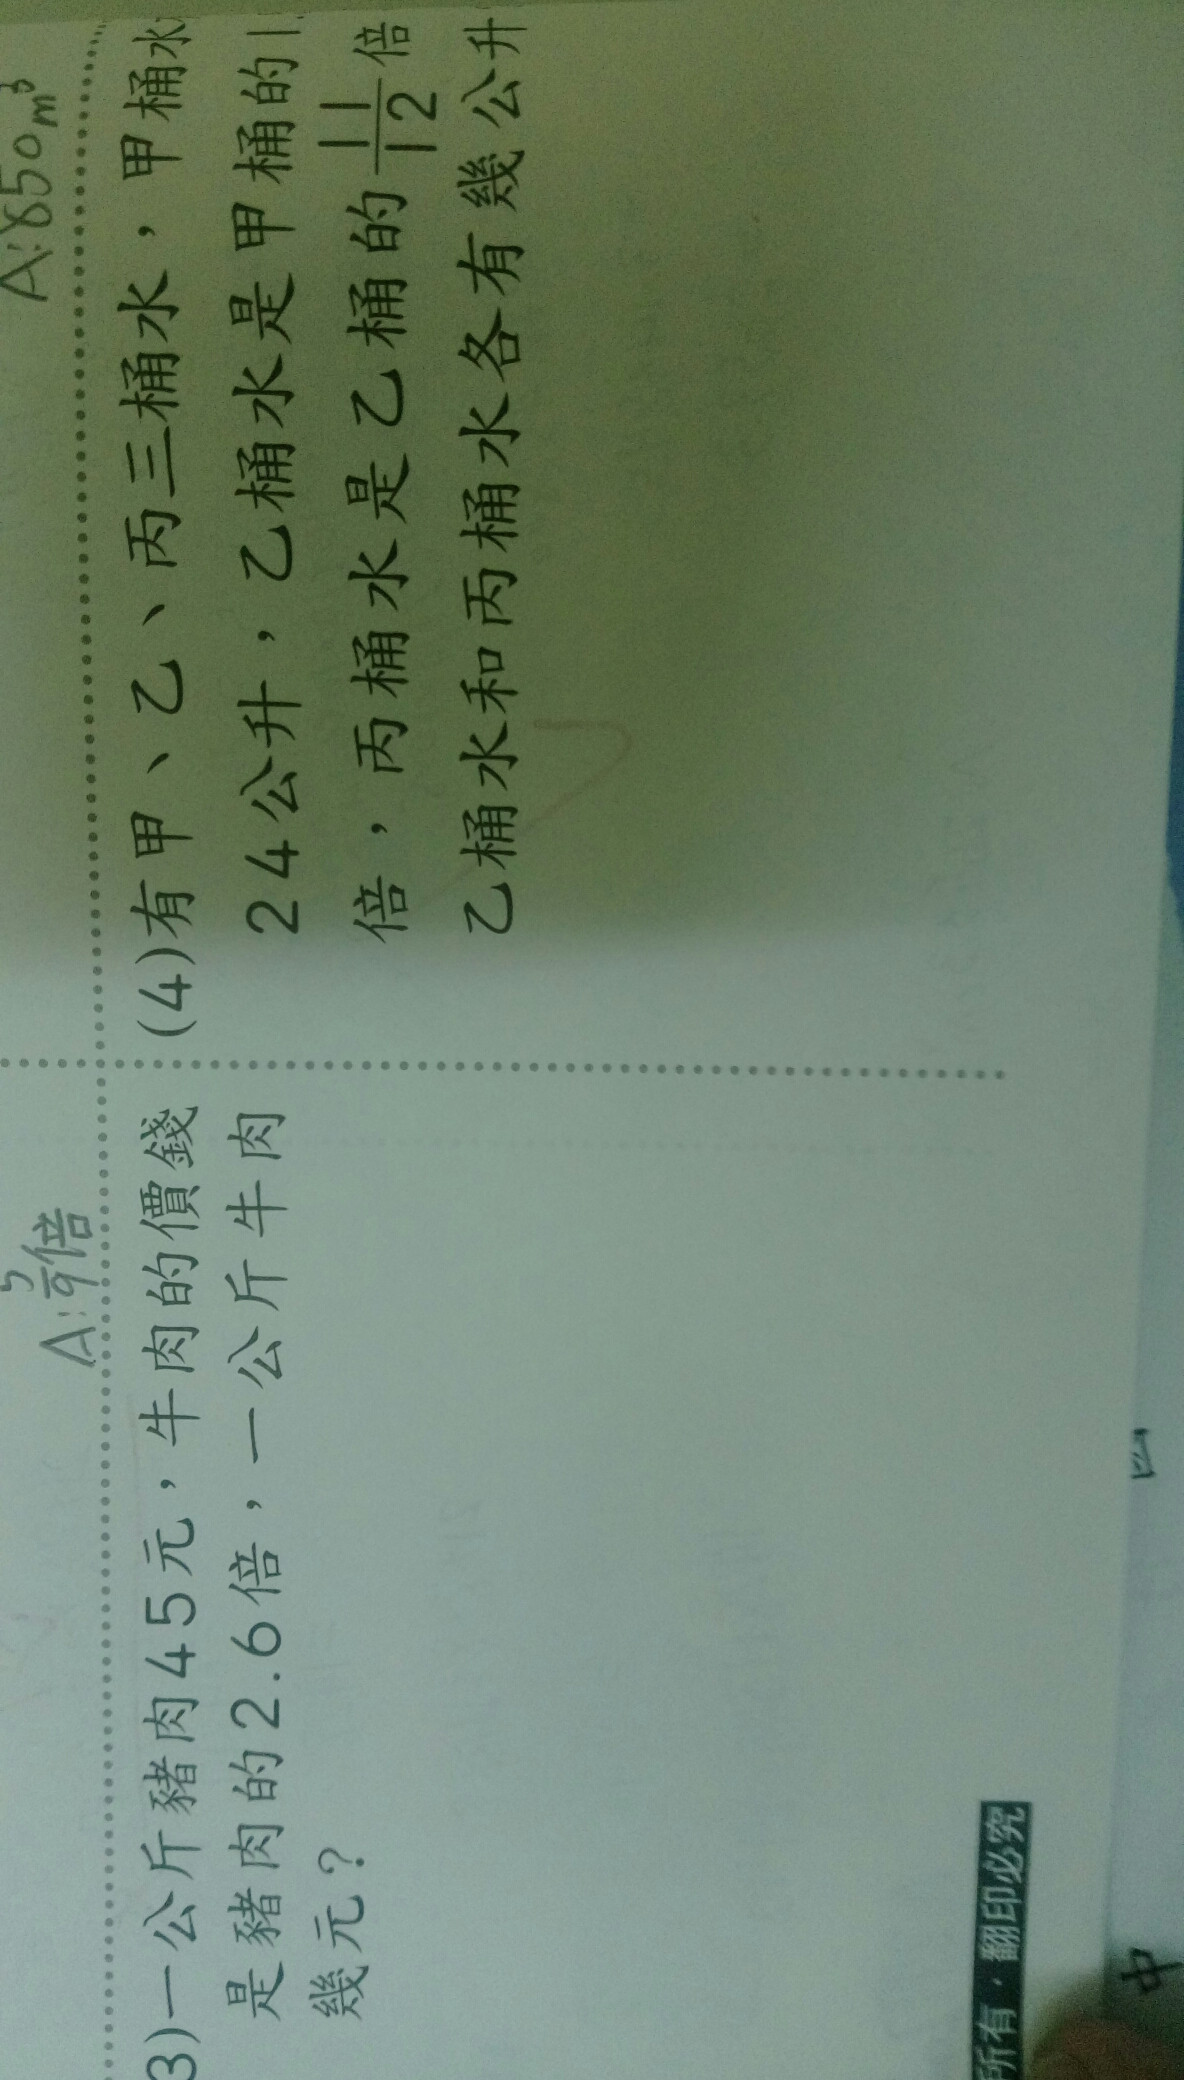 A:5/9倍
3)一公斤豬肉45元，牛肉的價錢
是豬肉的2.6倍，一公斤牛肉
幾元？
A:850m³
(4)有甲、乙、丙三桶水，甲桶水
24公升，乙桶水是甲桶的
倍，丙桶水是乙桶的11/12倍
乙桶水和丙桶水各有幾公升
所有．翻印必究
中